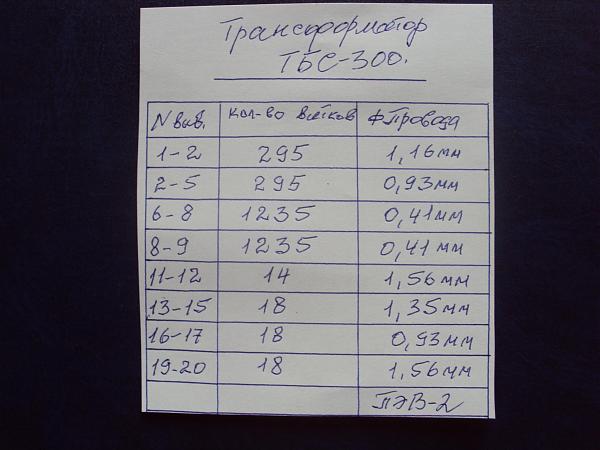 Трансформатор
ТБС-300.
N выв. кол-во витков Ф Провода
1-2 295 1,16мм
2-5 295 0,93мм
6-8 1235 0,41мм
8-9 1235 0,41мм
11-12 14 1,56мм
13-15 18 1,35мм
16-17 18 0,93мм
19-20 18 1,56мм
ПЭВ-2